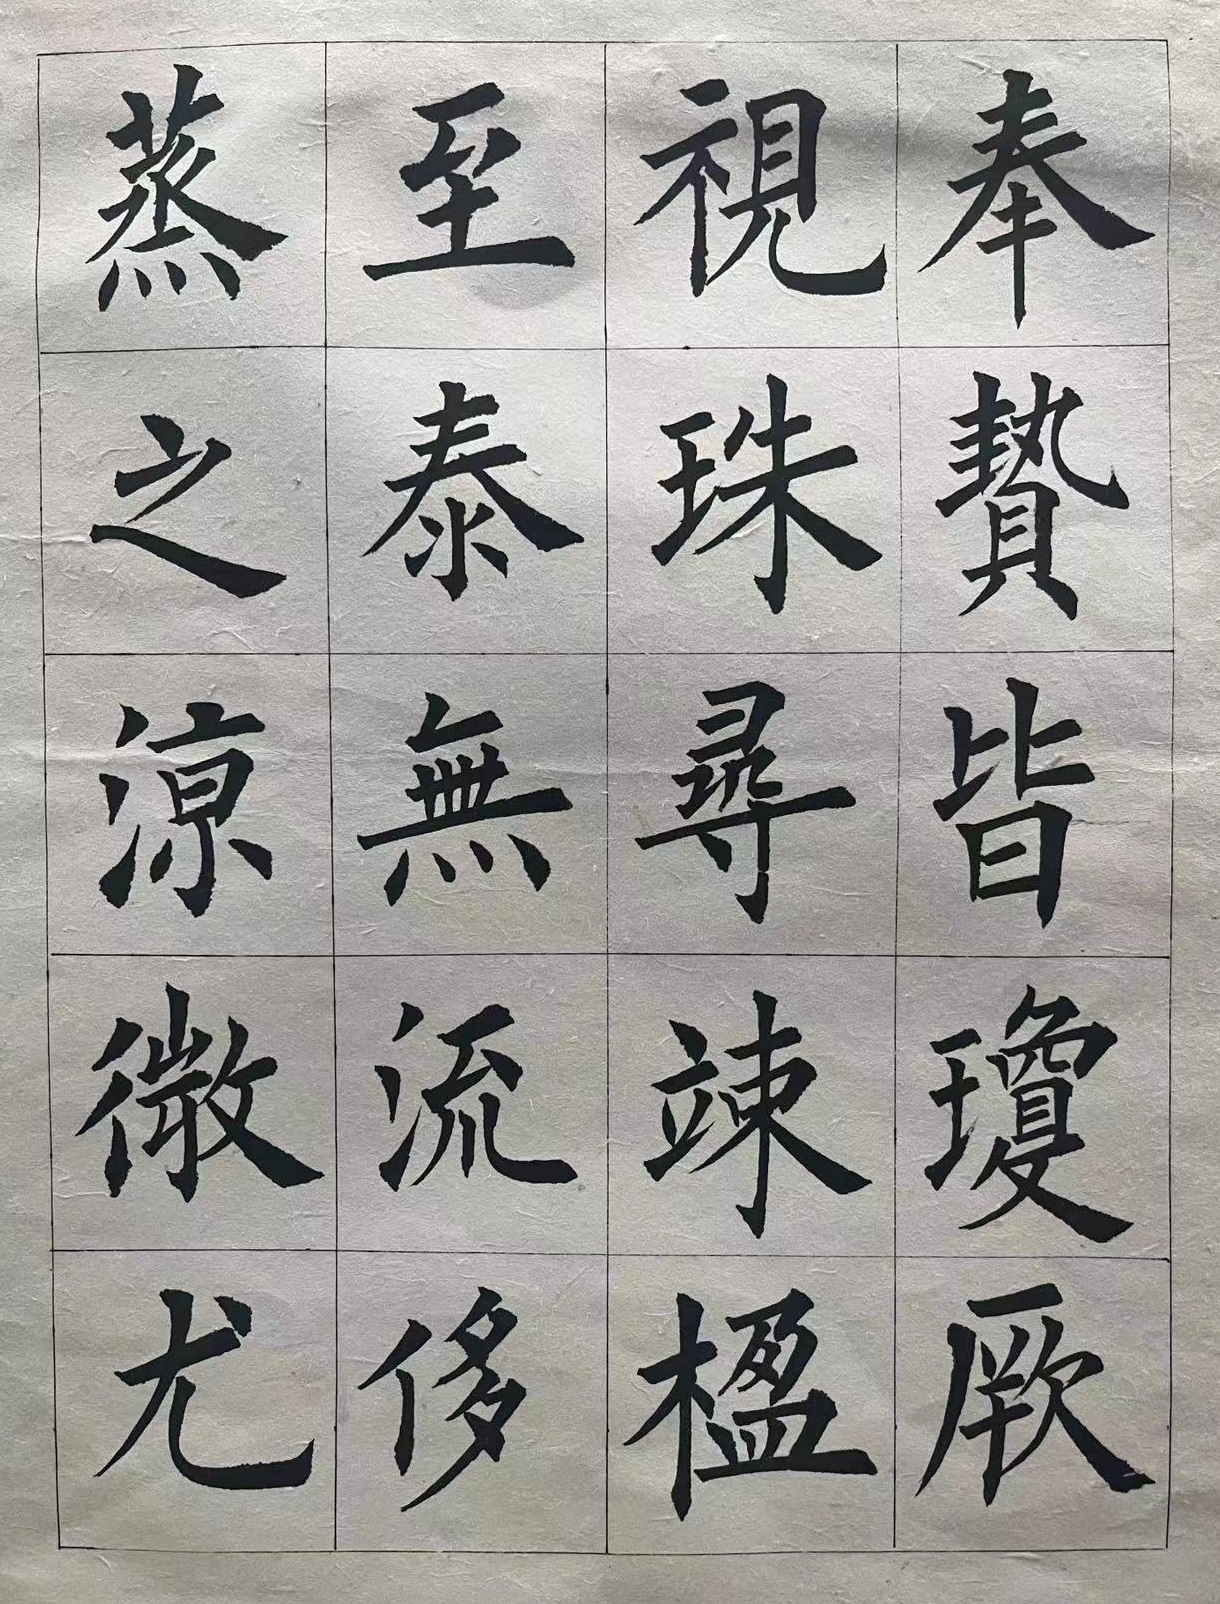 奉贄皆瓊厥
視珠尋竦楹
至泰無流侈
蒸之涼微尤